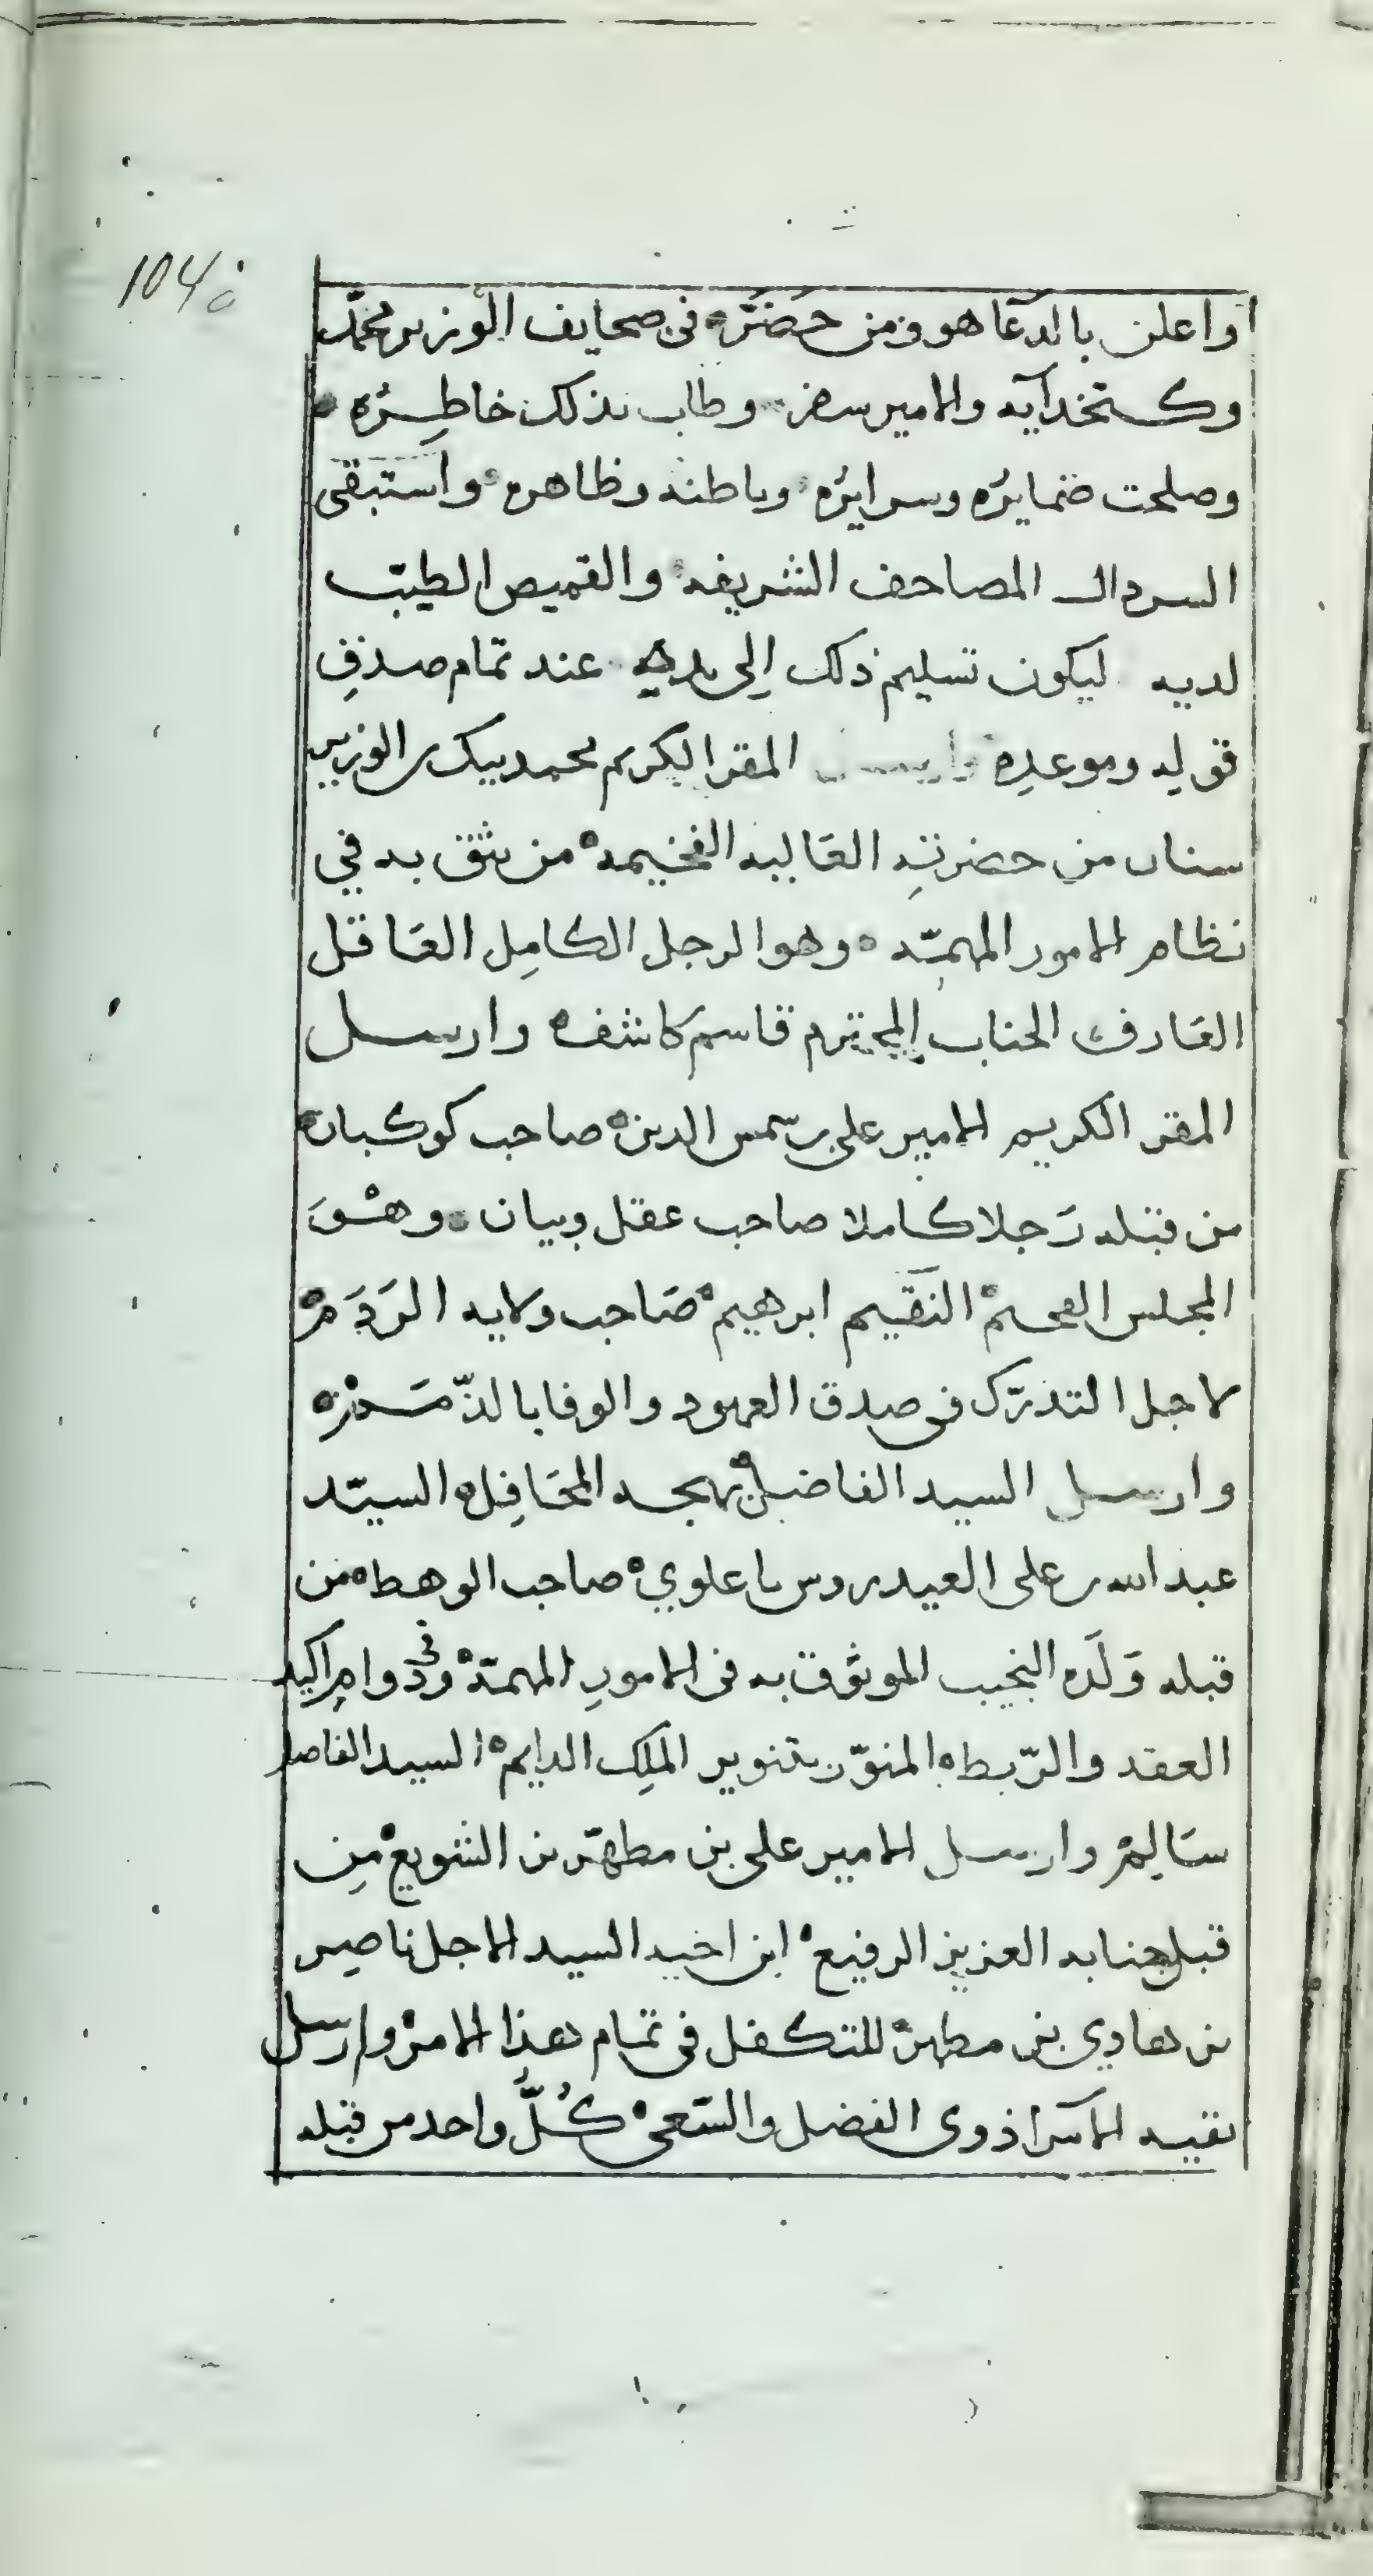 104
واعلن بالدعا هو ومن حضره في صحايف الوزير محمّد
وكتخدآيه والامير سفر وطاب بذلك خاطره
وصلحت ضمايره وسرايره وباطنه وظاهره واستبقى
السردال المصاحف الشريفه والقميص الطيّب
لديه ليكون تسليم ذلك إلى عند تمام صدق
قوله وموعده المقر الكريم محمد بيك بن الوزير
سنان من حضرته العاليه الفخيمه من يثق به في
نظام الامور المهمّه وهو الرجل الكامل العاقل
العارف الجناب المحترم قاسم كاشف وارسل
المقر الكريم الامير علي بن شمس الدين صاحب كوكبان
من قبله رَجلا كاملا صاحب عقل وبيان وهُوَ
المجلس الفخم النقيم ابرهيم صَاحب ولايه الرَدَم
لاجل التدرّك في صدق العهود والوفا بالذّمَم
وارسل السيد الفاضل بهجه المحَافِل السيّد
عبد الله بن علي العيدروس باعلوي صاحب الوهط من
قبله وَلَده النجيب الموثوق به في الامورِ المهمّة وفي دوام اكيد
العقد والرّبط المنوّر بتنوير الملِك الدايم السيد الفاضل
سَالِم وارسل الامير علي بن مطهّر بن الشويع مِن
قبل جنابه العزيز الرفيع ابن اخيه السيد الاجل ناصِر
بن هادي بن مطهر للتكفل في تمام هذا الامر وارسل
بقيه الامرا ذوي الفضل والسّعي كُلُّ واحد من قبله